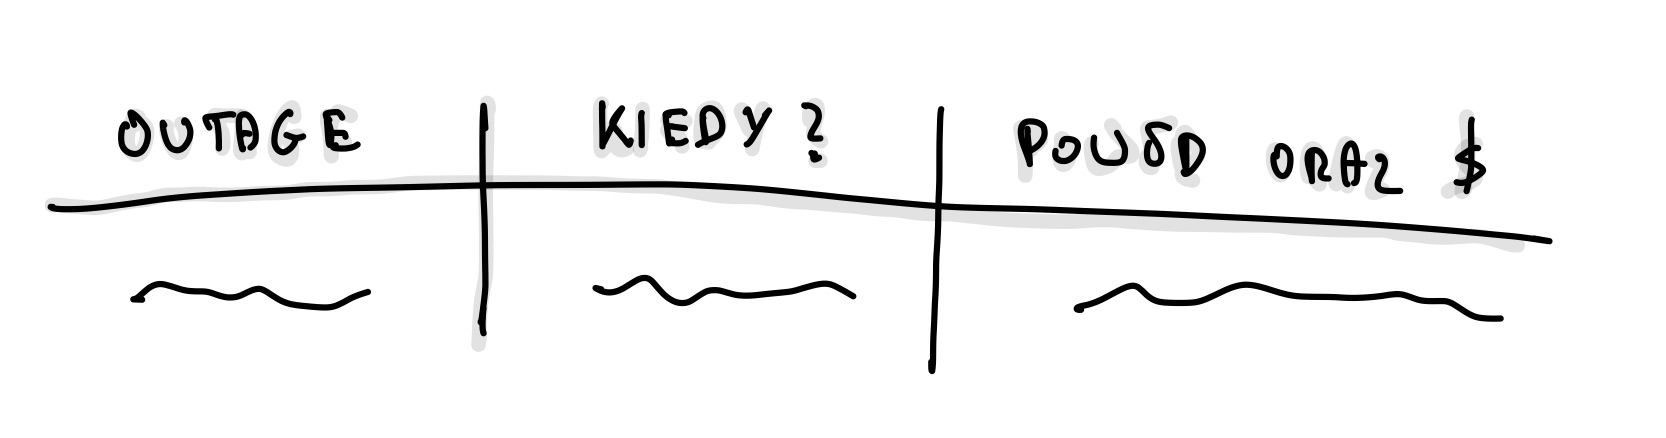 OUTAGE KIEDY? POWÓD ORAZ $